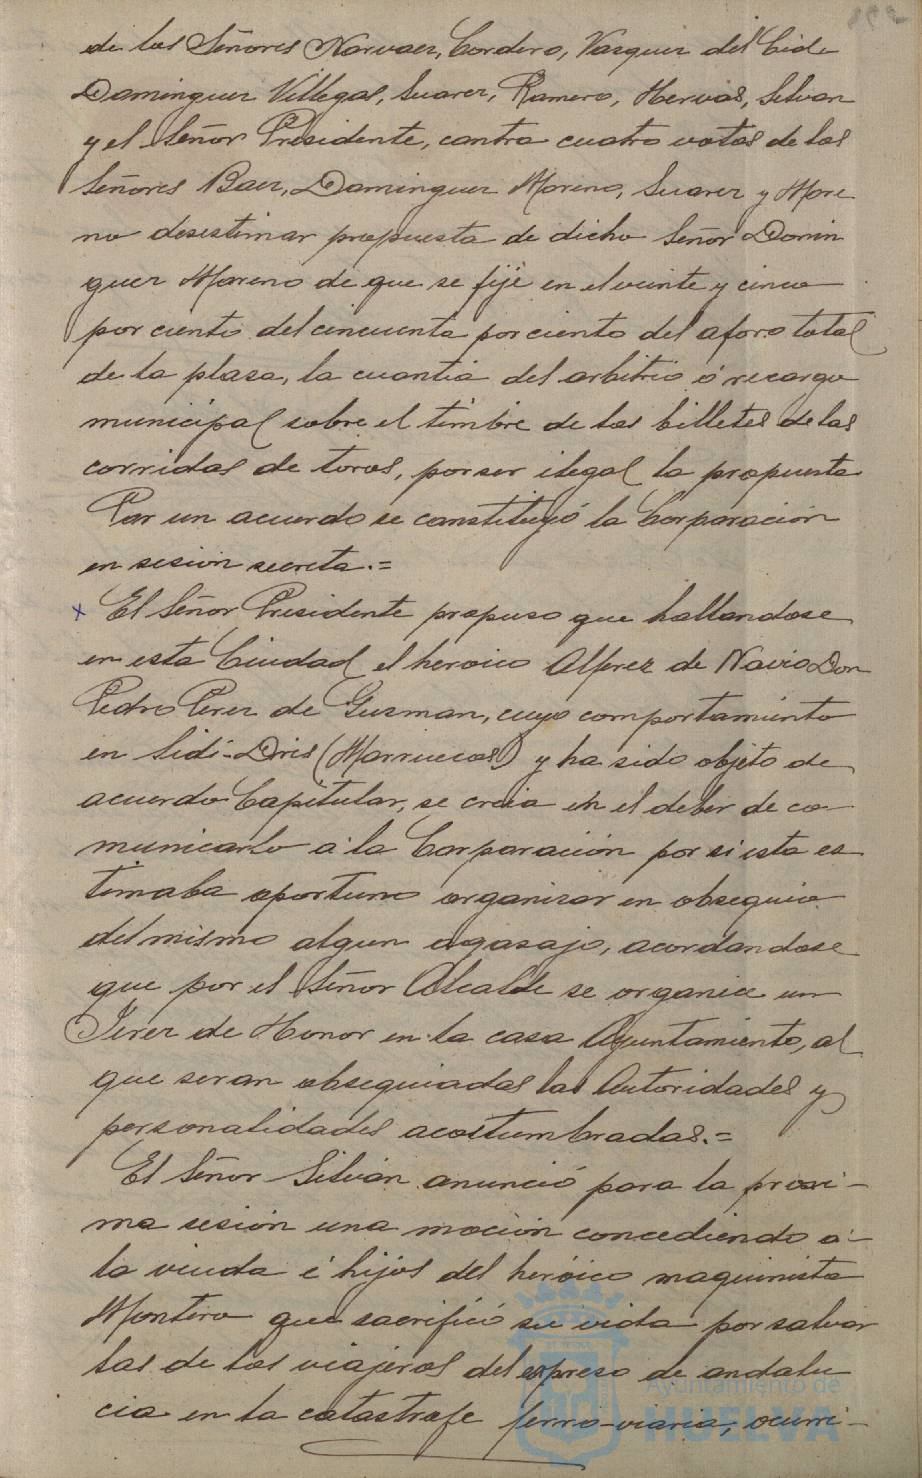 de los Señores Narvaez, Cordero, Vazquez del Cid
Dominguez Villegas, Suarez, Romero, Hervas, Silvan
y el Señor Presidente, contra cuatro votos de los
Señores Baez, Dominguez Moreno, Suarez y More
no desestimar propuesta de dicho Señor Domin
guez Moreno de que se fije en el veinte y cinco
por ciento del cincuenta por ciento del aforo total
de la plaza, la cuantia del arbitrio ó recargo
municipal sobre el timbre de los billetes de las
corridas de toros, por ser ilegal la propuesta
Por un acuerdo se constituyó la Corporacion
en sesion secreta.=
x El Señor Presidente propuso que hallandose
en esta Ciudad el heroico Alferez de Navio Don
Pedro Perez de Guzman, cuyo comportamiento
en Sidi-Dris (Marruecos) y ha sido objeto de
acuerdo Capitular, se creia en el deber de co
municarlo á la Corporación por si esta es
timaba oportuno organizar en obsequio
del mismo algun agasajo, acordandose
que por el Señor Alcalde se organice un
Jerez de Honor en la casa Ayuntamiento, al
que seran obsequiadas las Autoridades y
personalidades acostumbradas.=
El Señor Silván anunció para la proxi-
ma sesión una moción concediendo á
la viuda é hijos del heróico maquinista
Montero que sacrificó su vida por salvar
las de los viajeros del expreso de andalu
cia en la catastrofe ferro-viaria, ocurri-
Ayuntamiento de
HUELVA